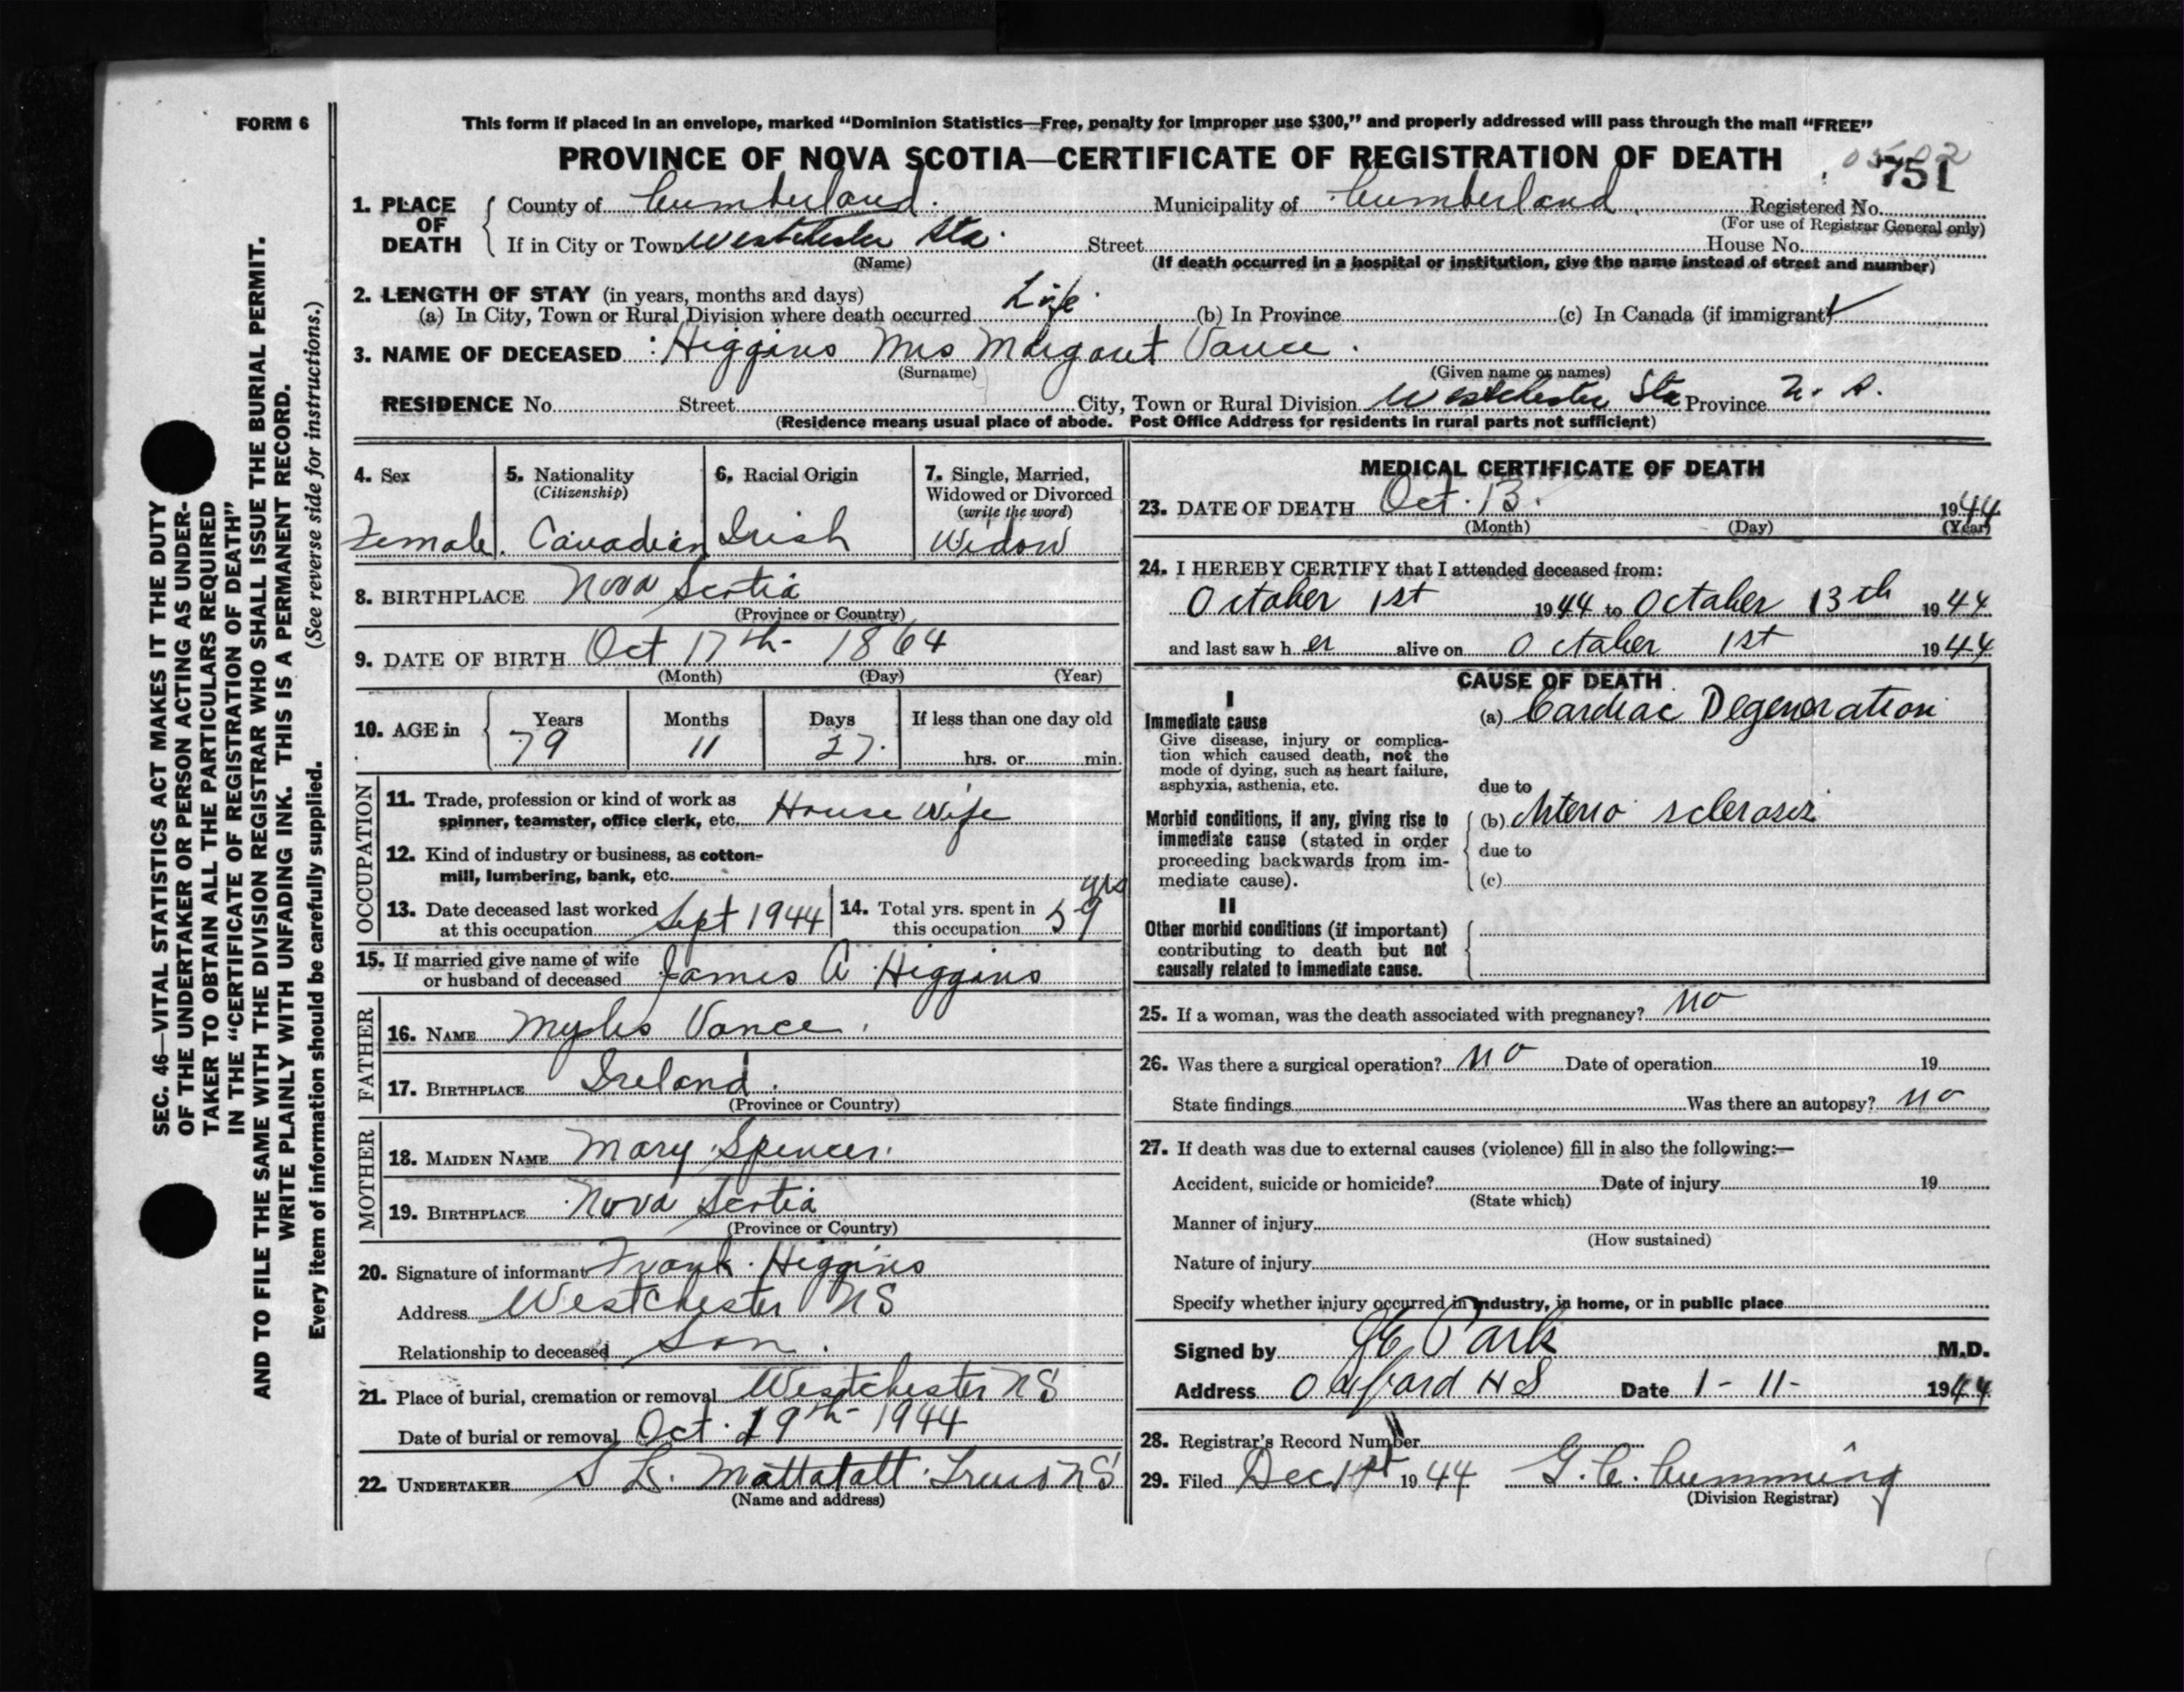 FORM 6
This form if placed in an envelope, marked “Dominion Statistics—Free, penalty for improper use $300,” and properly addressed will pass through the mail “FREE”
PROVINCE OF NOVA SCOTIA—CERTIFICATE OF REGISTRATION OF DEATH
751
1. PLACE OF DEATH
County of Cumberland. Municipality of Cumberland Registered No.
(For use of Registrar General only)
If in City or Town Westchester Sta. Street House No.
(Name) (If death occurred in a hospital or institution, give the name instead of street and number)
2. LENGTH OF STAY (in years, months and days)
(a) In City, Town or Rural Division where death occurred Life (b) In Province (c) In Canada (if immigrant)
3. NAME OF DECEASED Higgins Mrs Margaret Vance.
(Surname) (Given name or names)
RESIDENCE No. Street City, Town or Rural Division Westchester Sta Province N. S.
(Residence means usual place of abode. Post Office Address for residents in rural parts not sufficient)
4. Sex
Female.
5. Nationality
(Citizenship)
Canadian
6. Racial Origin
Irish
7. Single, Married,
Widowed or Divorced
(write the word)
Widow
8. BIRTHPLACE Nova Scotia
(Province or Country)
9. DATE OF BIRTH Oct 17th 1864
(Month) (Day) (Year)
10. AGE in
Years Months Days If less than one day old
79 11 27. hrs. or min.
OCCUPATION
11. Trade, profession or kind of work as
spinner, teamster, office clerk, etc. House Wife
12. Kind of industry or business, as cotton-
mill, lumbering, bank, etc.
13. Date deceased last worked
at this occupation Sept 1944
14. Total yrs. spent in
this occupation 59 yrs
15. If married give name of wife
or husband of deceased James A Higgins
FATHER
16. NAME Myles Vance
17. BIRTHPLACE Ireland.
(Province or Country)
MOTHER
18. MAIDEN NAME Mary Spencer.
19. BIRTHPLACE Nova Scotia
(Province or Country)
20. Signature of informant Frank Higgins
Address Westchester NS
Relationship to deceased Son.
21. Place of burial, cremation or removal Westchester NS
Date of burial or removal Oct. 19th 1944
22. UNDERTAKER S L. Mattatall Truro NS
(Name and address)
MEDICAL CERTIFICATE OF DEATH
23. DATE OF DEATH Oct. 13. 1944
(Month) (Day) (Year)
24. I HEREBY CERTIFY that I attended deceased from:
October 1st 1944 to October 13th 1944
and last saw her alive on October 1st 1944
CAUSE OF DEATH
I
Immediate cause
Give disease, injury or complica-
tion which caused death, not the
mode of dying, such as heart failure,
asphyxia, asthenia, etc.
(a) Cardiac Degeneration
due to
Morbid conditions, if any, giving rise to
immediate cause (stated in order
proceeding backwards from im-
mediate cause).
(b) Arterio sclerosis
due to
(c)
II
Other morbid conditions (if important)
contributing to death but not
causally related to immediate cause.
25. If a woman, was the death associated with pregnancy? no
26. Was there a surgical operation? no Date of operation 19
State findings Was there an autopsy? no
27. If death was due to external causes (violence) fill in also the following:—
Accident, suicide or homicide? Date of injury 19
(State which)
Manner of injury
(How sustained)
Nature of injury
Specify whether injury occurred in industry, in home, or in public place
Signed by Park M.D.
Address Oxford NS Date 1-11- 1944
28. Registrar's Record Number
29. Filed Dec 1st 1944 G. C. Cumming
(Division Registrar)
SEC. 46—VITAL STATISTICS ACT MAKES IT THE DUTY
OF THE UNDERTAKER OR PERSON ACTING AS UNDER-
TAKER TO OBTAIN ALL THE PARTICULARS REQUIRED
IN THE “CERTIFICATE OF REGISTRATION OF DEATH”
AND TO FILE THE SAME WITH THE DIVISION REGISTRAR WHO SHALL ISSUE THE BURIAL PERMIT.
WRITE PLAINLY WITH UNFADING INK. THIS IS A PERMANENT RECORD.
Every item of information should be carefully supplied. (See reverse side for instructions.)